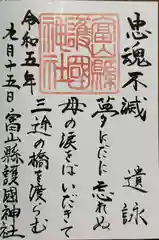 忠魂不滅
遺詠
夢にだに忘れぬ
母の涙をばいだきて
三途の橋を渡らむ
令和五年
九月十五日
富山縣護國神社
富山縣護國神社